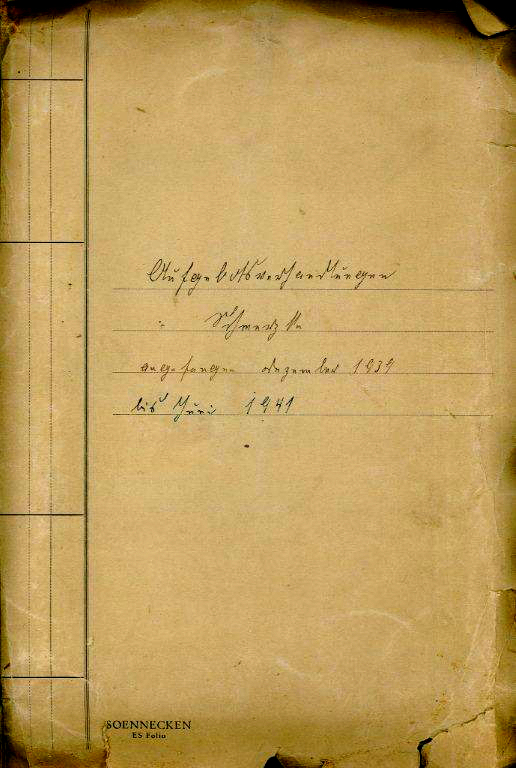 Aufgebotsverhandlungen
Schmerzke
angefangen dezember 1939
bis Juni 1941
SOENNECKEN
ES Folio